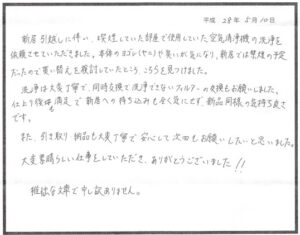 平成 28年 5月 10日
新居引越しに伴い、喫煙していた部屋で使用していた空気清浄機の洗浄を
依頼させていただきました。本体のヨゴレ(ヤニ)や臭いが気になり、新居では禁煙の予定
だったので買い替えを検討していたところ、こちらを見つけました。
洗浄は大変丁寧で、同時交換できないフィルターの交換もお願いしました。
仕上り後 満足で新居への持ち込みも全く気にせず、新品同様の気持ち良さ
です。
また、引き取り・納品も大変丁寧で安心して次回もお願いしたいと思いました。
大変素晴らしい仕事をしていただき、ありがとうございました!!
雑な文章で申し訳ありません。